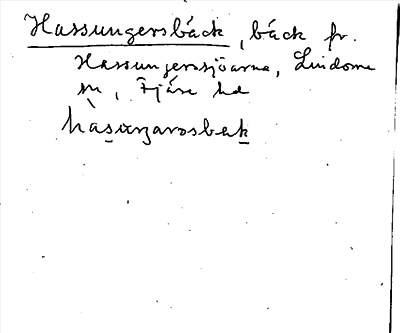 Hassungersbäck, bäck fr.
Hassungerssjöarna, Lindome
sn, Fjäre hd
hasuŋarosbek